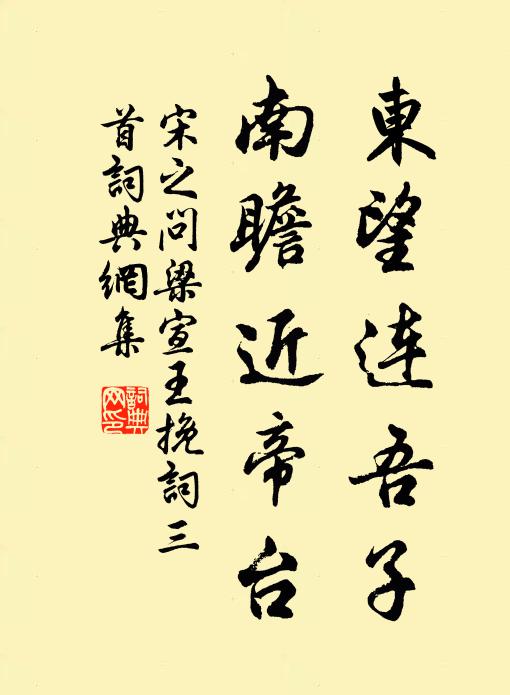 東望連吾子
南瞻近帝台
宋之问梁宣王挽詞三
首詞典網集
詞典网印